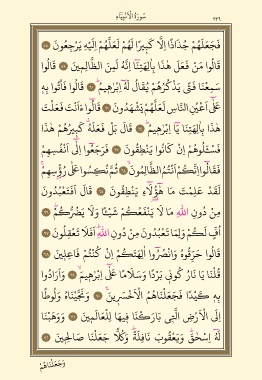 سُورَةُ الْاَنْبِيَاءِ
٣٢٦
فَجَعَلَهُمْ جُذَاذًا اِلَّا كَبِيرًا لَهُمْ لَعَلَّهُمْ اِلَيْهِ يَرْجِعُونَ ﴿٥٨﴾
قَالُوا مَنْ فَعَلَ هٰذَا بِاٰلِهَتِنَا اِنَّهُ لَمِنَ الظَّالِمِينَ ﴿٥٩﴾ قَالُوا
سَمِعْنَا فَتًى يَذْكُرُهُمْ يُقَالُ لَهُ اِبْرٰهِيمُ ﴿٦٠﴾ قَالُوا فَأْتُوا بِهِ
عَلٰى اَعْيُنِ النَّاسِ لَعَلَّهُمْ يَشْهَدُونَ ﴿٦١﴾ قَالُوا ءَاَنْتَ فَعَلْتَ
هٰذَا بِاٰلِهَتِنَا يَا اِبْرٰهِيمُ ﴿٦٢﴾ قَالَ بَلْ فَعَلَهُ كَبِيرُهُمْ هٰذَا
فَسْـَٔلُوهُمْ اِنْ كَانُوا يَنْطِقُونَ ﴿٦٣﴾ فَرَجَعُوا اِلٰى اَنْفُسِهِمْ
فَقَالُوا اِنَّكُمْ اَنْتُمُ الظَّالِمُونَ ﴿٦٤﴾ ثُمَّ نُكِسُوا عَلٰى رُؤُسِهِمْ
لَقَدْ عَلِمْتَ مَا هٰٓؤُلَاءِ يَنْطِقُونَ ﴿٦٥﴾ قَالَ اَفَتَعْبُدُونَ
مِنْ دُونِ اللّٰهِ مَا لَا يَنْفَعُكُمْ شَيْئًا وَلَا يَضُرُّكُمْ ﴿٦٦﴾
اُفٍّ لَكُمْ وَلِمَا تَعْبُدُونَ مِنْ دُونِ اللّٰهِ اَفَلَا تَعْقِلُونَ ﴿٦٧﴾
قَالُوا حَرِّقُوهُ وَانْصُرُوا اٰلِهَتَكُمْ اِنْ كُنْتُمْ فَاعِلِينَ ﴿٦٨﴾
قُلْنَا يَا نَارُ كُونِي بَرْدًا وَسَلَامًا عَلٰى اِبْرٰهِيمَ ﴿٦٩﴾ وَاَرَادُوا
بِهِ كَيْدًا فَجَعَلْنَاهُمُ الْاَخْسَرِينَ ﴿٧٠﴾ وَنَجَّيْنَاهُ وَلُوطًا
اِلَى الْاَرْضِ الَّتِي بَارَكْنَا فِيهَا لِلْعَالَمِينَ ﴿٧١﴾ وَوَهَبْنَا
لَهُ اِسْحٰقَ وَيَعْقُوبَ نَافِلَةً وَكُلًّا جَعَلْنَا صَالِحِينَ ﴿٧٢﴾
وَجَعَلْنَاهُمْ